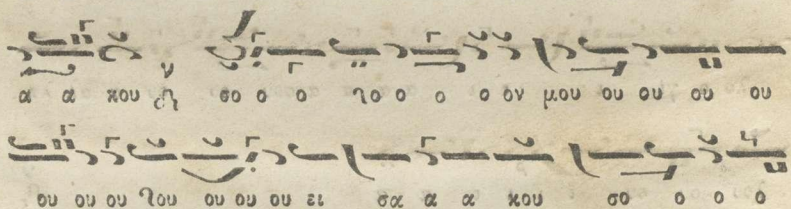 α α κου σο ο ο το ο ο ο ον μου ου ου ου ου
ου ου ου του ου ου ου ει σα α α κου σο ο ο ο